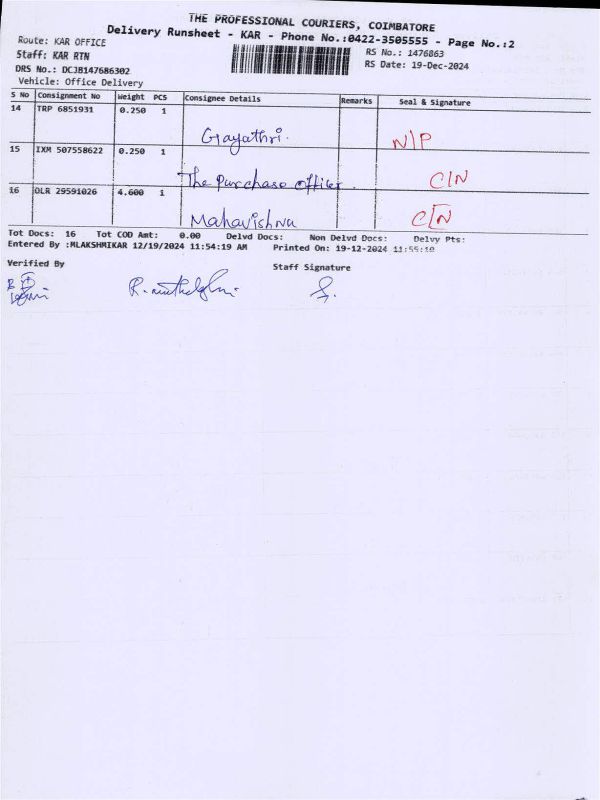 THE PROFESSIONAL COURIERS, COIMBATORE
Delivery Runsheet - KAR - Phone No.:0422-3505555 - Page No.:2
Route: KAR OFFICE
RS No.: 1476863
Staff: KAR RTN
RS Date: 19-Dec-2024
DRS No.: DCJB147686302
Vehicle: Office Delivery
S No Consignment No Weight PCS Consignee Details Remarks Seal & Signature
14 TRP 6851931 0.250 1
Gayathri. N/P
15 IXM 507558622 0.250 1
The Purchase officer. C/N
16 DLR 29591026 4.600 1
Mahavishnu C/N
Tot Docs: 16 Tot COD Amt: 0.00 Delvd Docs: Non Delvd Docs: Delvy Pts:
Entered By :MLAKSHMIKAR 12/19/2024 11:54:19 AM Printed On: 19-12-2024 11:55:10
Verified By
Staff Signature